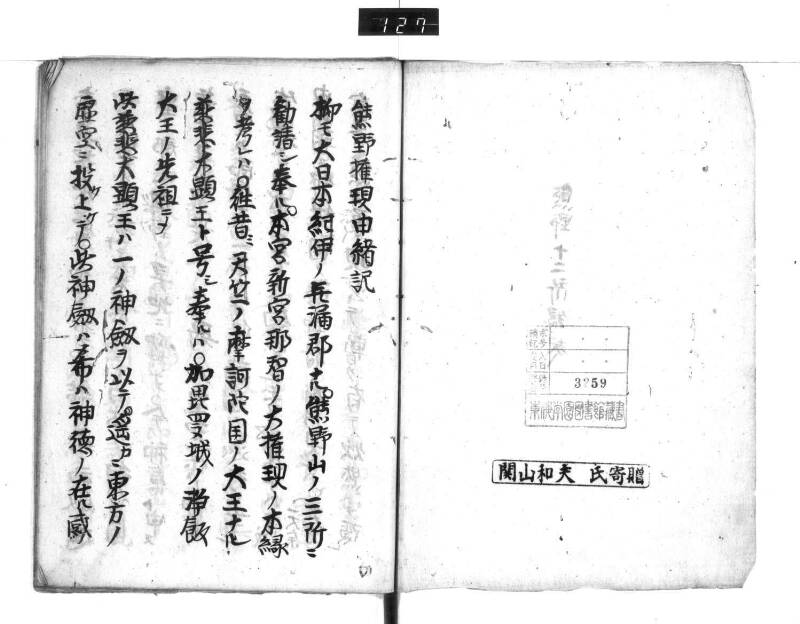 127
熊野権現由緒記
抑モ大日本紀伊ノ牟漏郡ナル。熊野山ノ三所ニ
勧請シ奉ル。本宮新宮那智ノ大権現ノ本縁
ヲ考レハ。往昔ニ天竺ノ摩訶陀国ノ大王ナル
慈悲大顕王ト号シ奉ルハ。加毘羅城ノ浄飯
大王ノ先祖ニメ
此慈悲大顕王ハ一ノ神釼ヲ以テ。遥カニ東方ノ
虚空ニ投上ケテ。此神釼ハ希ハ神徳ノ在ル
3259
東海学園図書館蔵書
関山和夫 氏寄贈